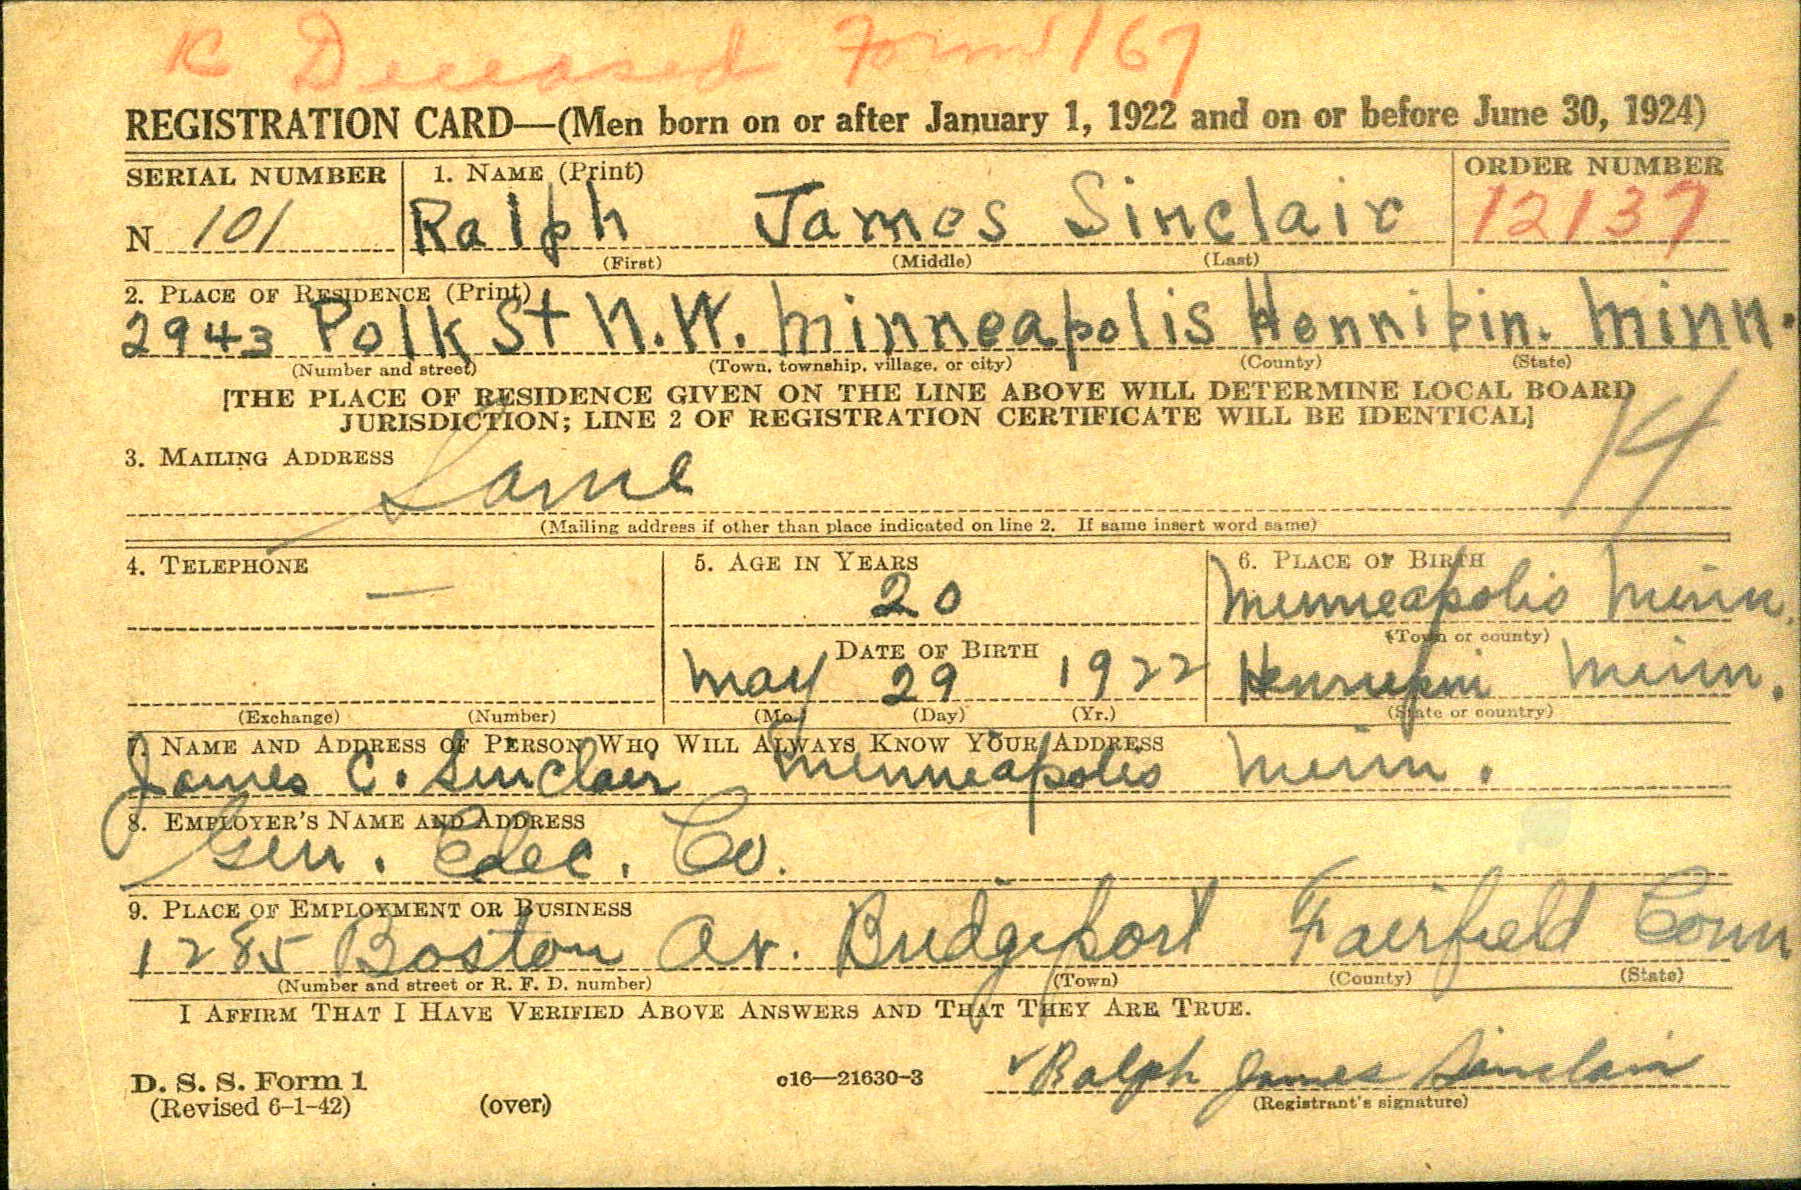 R Deceased Form 167
REGISTRATION CARD—(Men born on or after January 1, 1922 and on or before June 30, 1924)
SERIAL NUMBER 1. NAME (Print) ORDER NUMBER
N 101 Ralph James Sinclair 12137
(First) (Middle) (Last)
2. PLACE OF RESIDENCE (Print)
2943 Polk St N.W. Minneapolis Hennipin. Minn.
(Number and street) (Town, township, village, or city) (County) (State)
[THE PLACE OF RESIDENCE GIVEN ON THE LINE ABOVE WILL DETERMINE LOCAL BOARD
JURISDICTION; LINE 2 OF REGISTRATION CERTIFICATE WILL BE IDENTICAL]
14
3. MAILING ADDRESS
Same
(Mailing address if other than place indicated on line 2. If same insert word same)
4. TELEPHONE 5. AGE IN YEARS 6. PLACE OF BIRTH
— 20 Minneapolis Minn.
(Town or county)
DATE OF BIRTH
May 29 1922 Hennepin Minn.
(Exchange) (Number) (Mo.) (Day) (Yr.) (State or country)
7. NAME AND ADDRESS OF PERSON WHO WILL ALWAYS KNOW YOUR ADDRESS
James C. Sinclair Minneapolis Minn.
8. EMPLOYER'S NAME AND ADDRESS
Gen. Elec. Co.
9. PLACE OF EMPLOYMENT OR BUSINESS
1285 Boston Av. Bridgeport Fairfield Conn
(Number and street or R. F. D. number) (Town) (County) (State)
I AFFIRM THAT I HAVE VERIFIED ABOVE ANSWERS AND THAT THEY ARE TRUE.
Ralph James Sinclair
D. S. S. Form 1 c16—21630-3
(Revised 6-1-42) (over) (Registrant's signature)